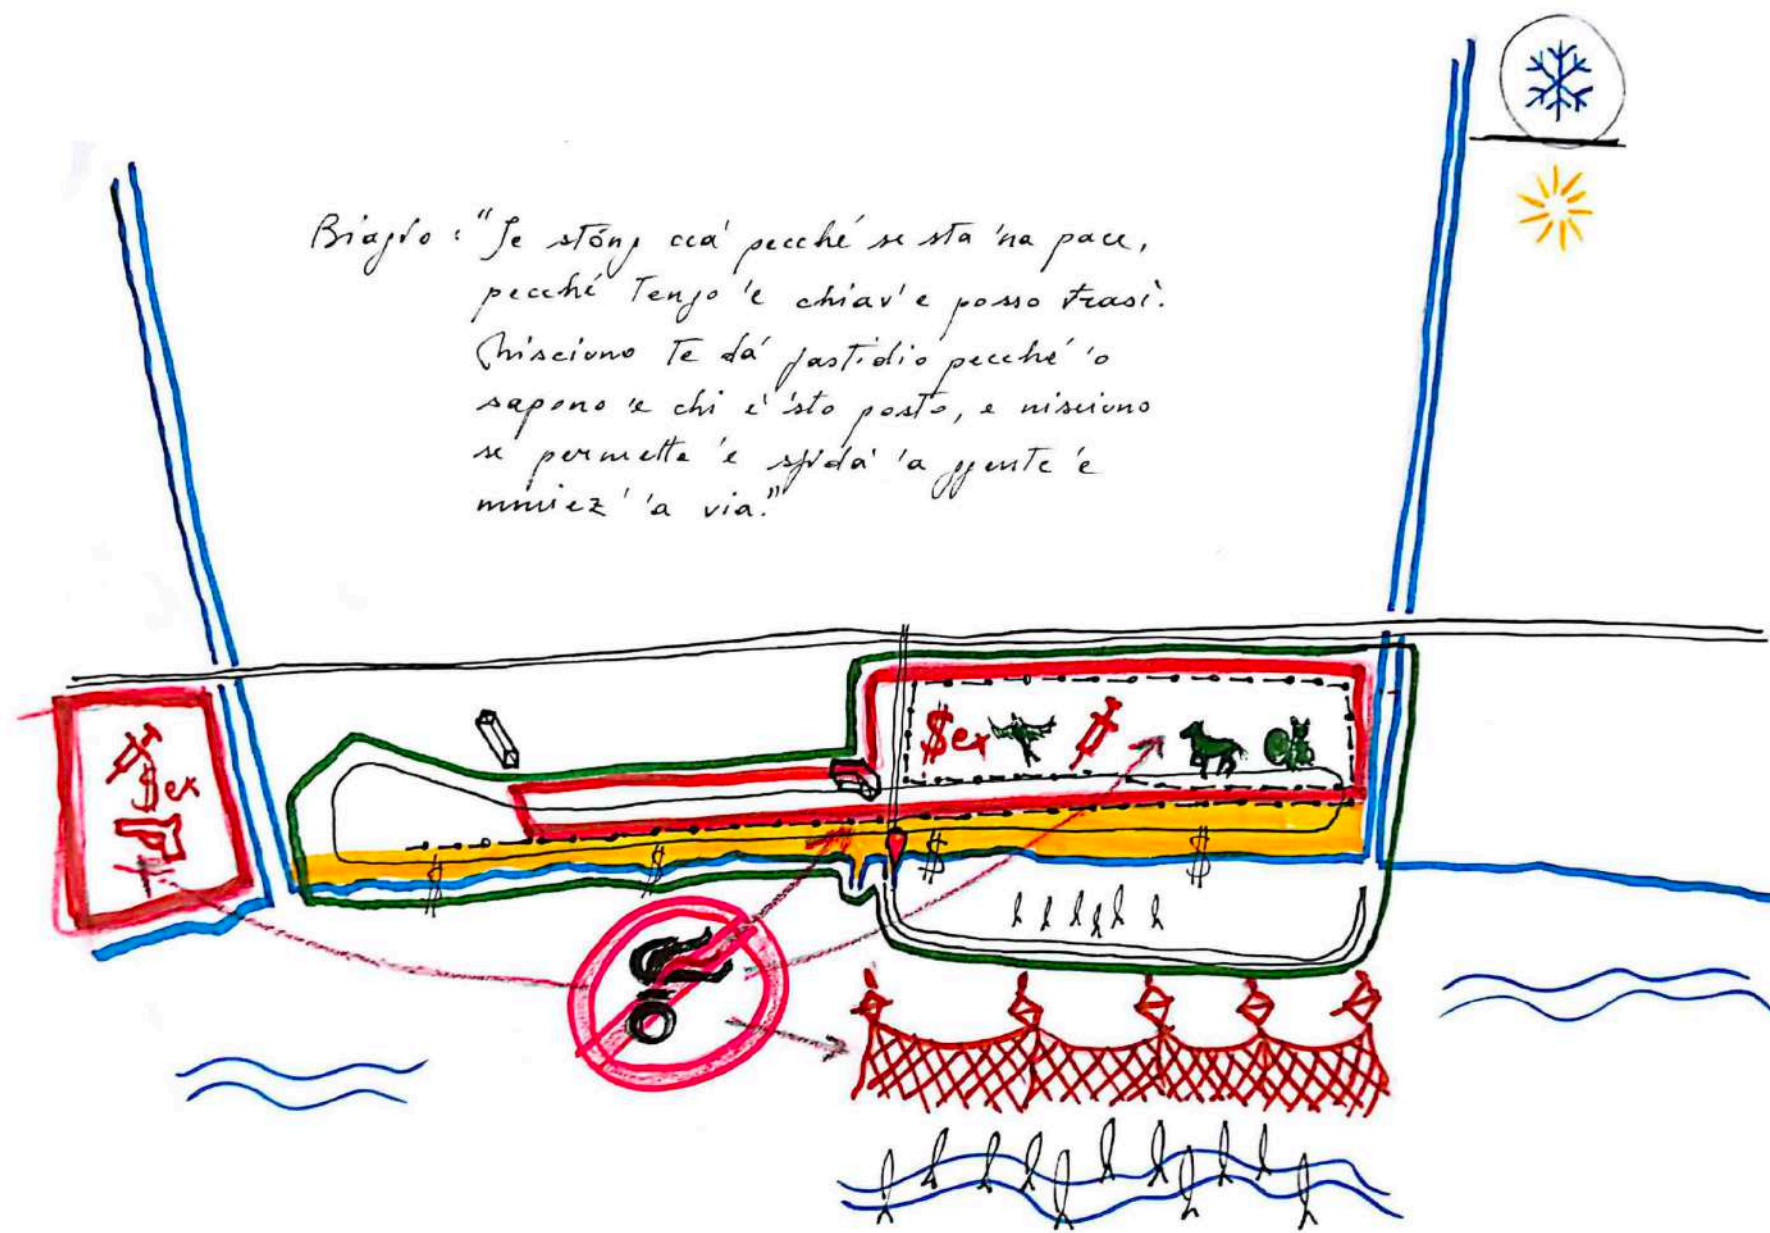 Biagio: "Je stóng ccà pecché se sta 'na pace,
pecché tengo 'e chiav' e posso trasì.
Nisciuno te dà fastidio pecché 'o
sapono 'e chi è 'sto posto, e nisciuno
se permette 'e sfidà 'a ggente 'e
mmiez' 'a via."
$ex
$ex
$
$
$
$